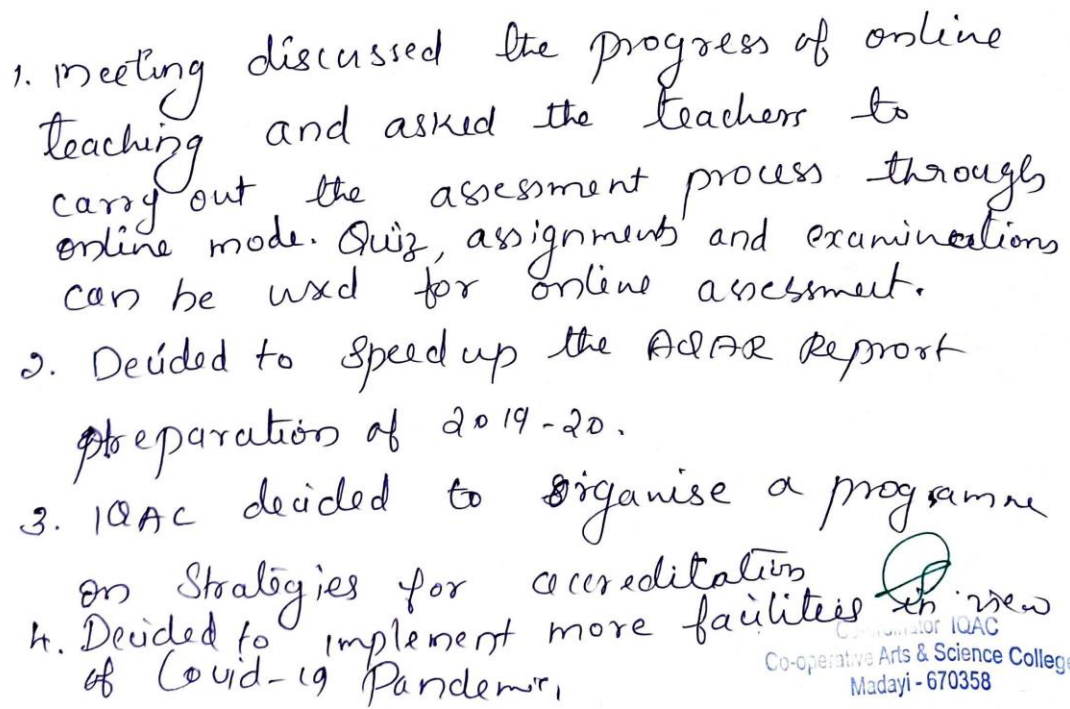 1. Meeting discussed the progress of online
teaching and asked the teachers to
carry out the assessment process through
online mode. Quiz, assignments and examinations
can be used for online assessment.
2. Decided to speed up the AQAR Report
preparation of 2019-20.
3. IQAC decided to organise a programme
on Strategies for accreditation
4. Decided to implement more facilities in view
of Covid-19 Pandemic,
IQAC
Co-operative Arts & Science College
Madayi - 670358